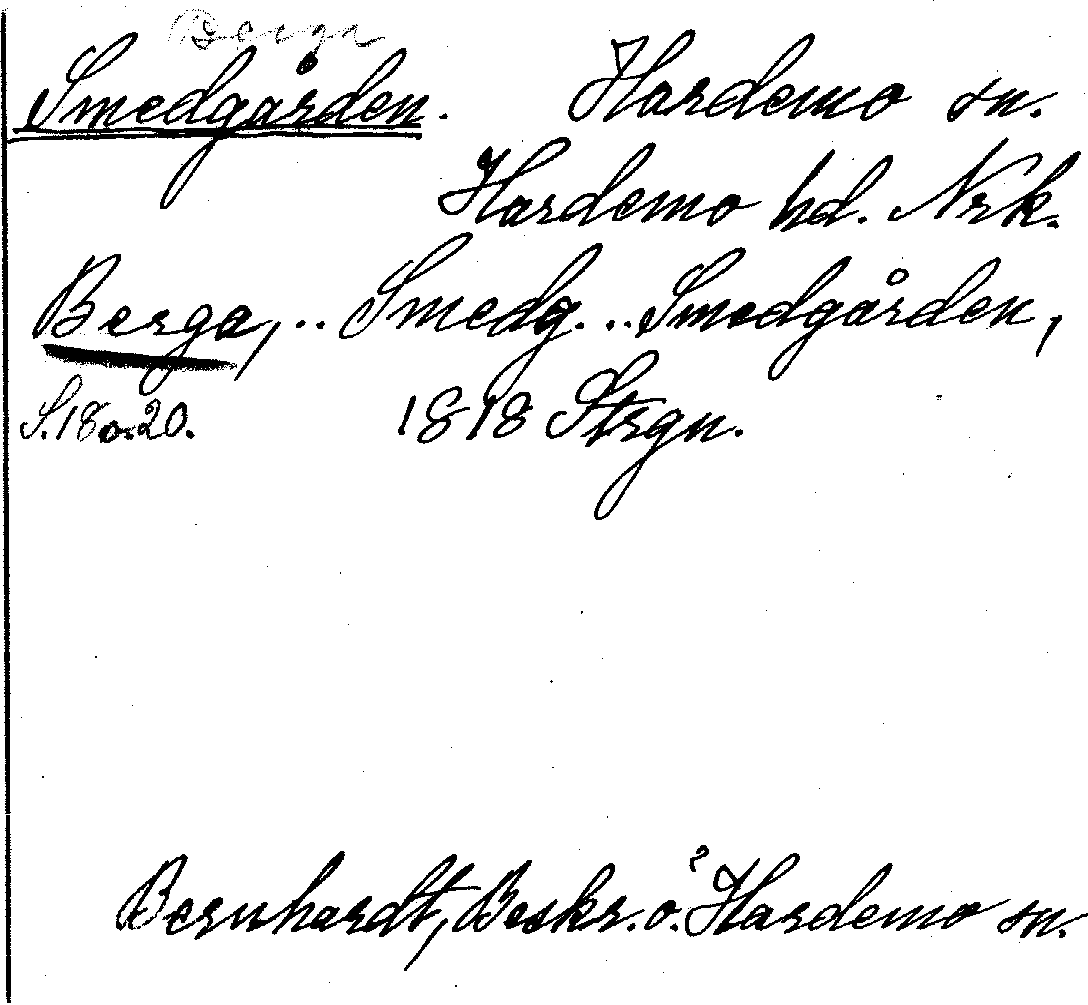 Berga
Smedgården. Hardemo sn.
Hardemo hd. Nrk.
Berga, .. Smedg. .. Smedgården,
S. 18 o. 20. 1818 Strgn.
Bernhardt, Beskr. ö. Hardemo sn.